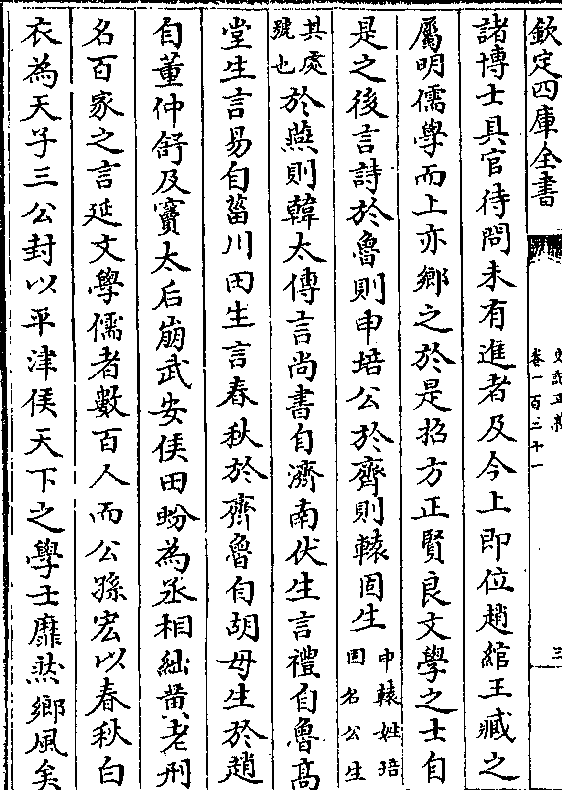 欽定四庫全書
史記正義
卷一百二十一
三
諸博士具官待問未有進者及今上即位趙綰王臧之
屬明儒學而上亦鄉之於是招方正賢良文學之士自
是之後言詩於魯則申培公於齊則轅固生申轅姓培固名公生
其處號也於燕則韓太傅言尚書自濟南伏生言禮自魯髙
堂生言易自菑川田生言春秋於齊魯自胡母生於趙
自董仲舒及竇太后崩武安侯田蚡為丞相絀黄老刑
名百家之言延文學儒者數百人而公孫宏以春秋白
衣為天子三公封以平津侯天下之學士靡然鄉風矣